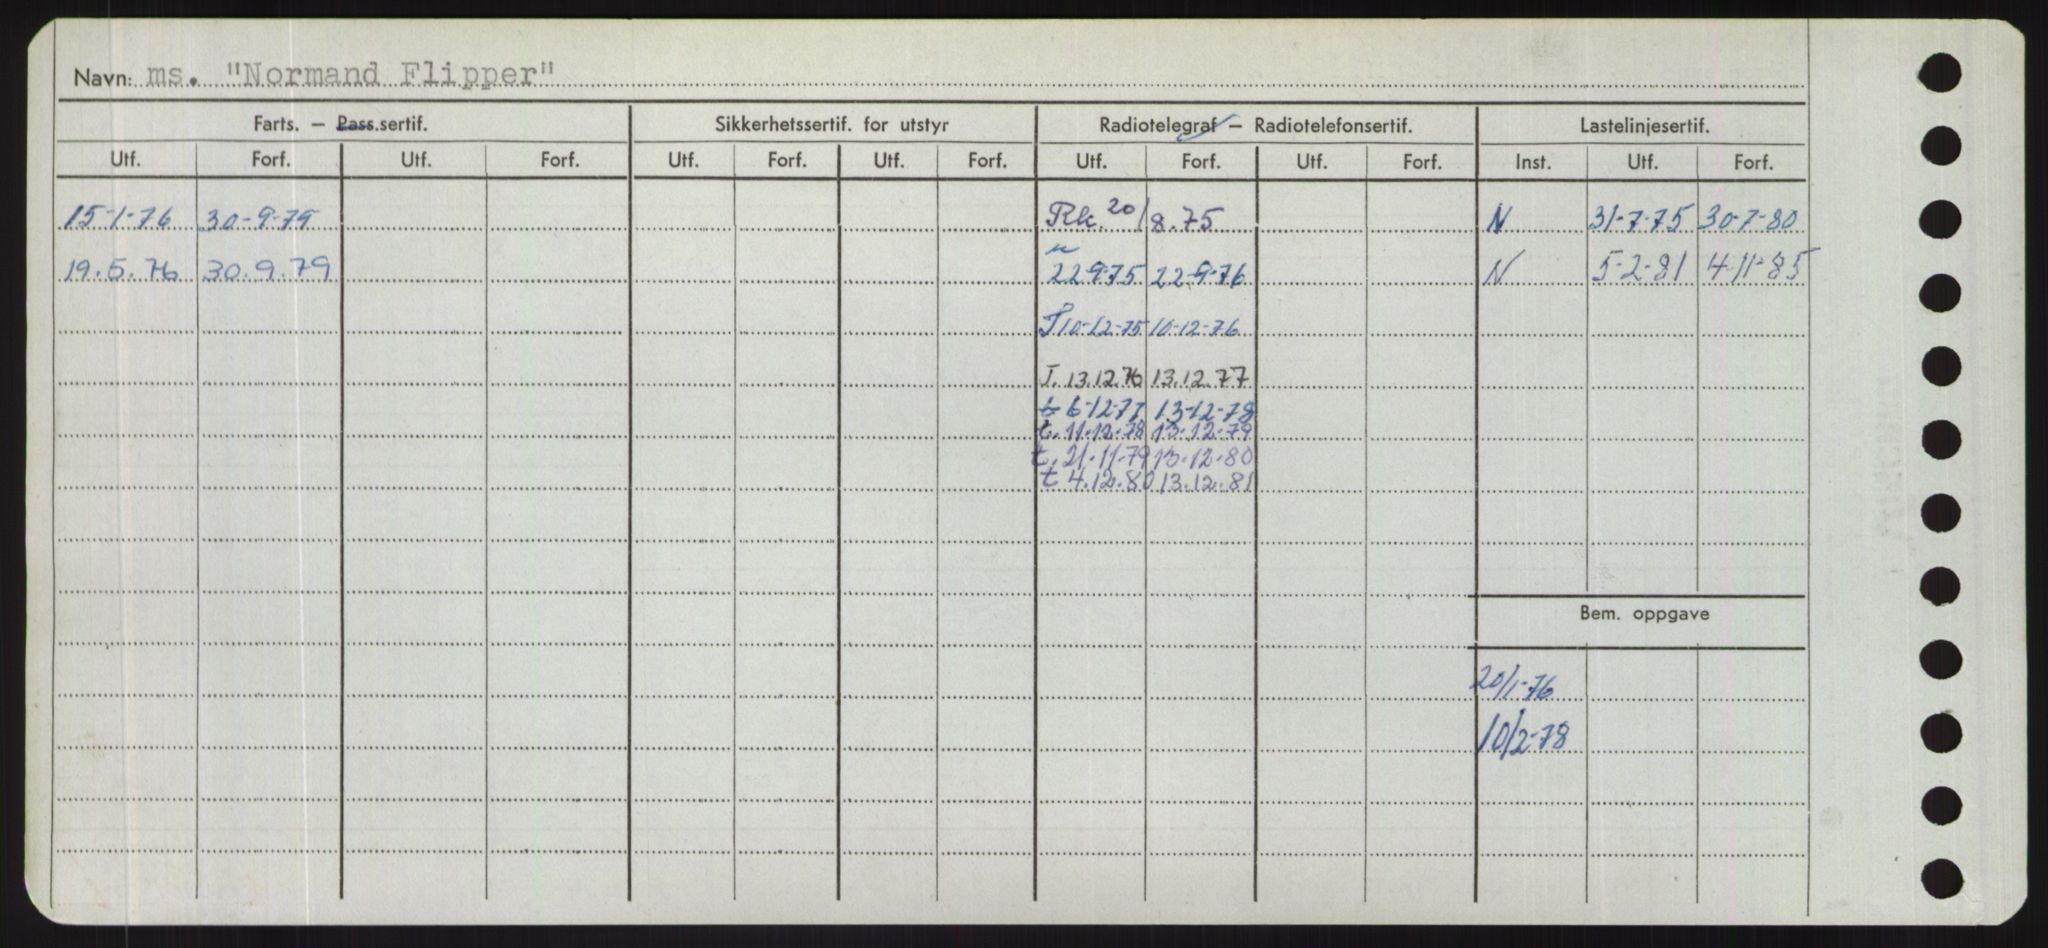 Navn: ms. "Normand Flipper"
Farts. — Pass.sertif. Sikkerhetssertif. for utstyr Radiotelegraf — Radiotelefonsertif. Lastelinjesertif.
Utf. Forf. Utf. Forf. Utf. Forf. Utf. Forf. Utf. Forf. Utf. Forf. Inst. Utf. Forf.
15-1-76 30-9-79 Rk. 20/8.75 N 31-7-75 30-7-80
19.5.76 30.9.79 22-9-75 22-9-76 N 5-2-81 4-11-85
T 10-12-75 10-12-76
T. 13.12.76 13.12.77
t 6-12-77 13-12-78
t. 11-12-78 13-12-79
t. 21-11-79 13-12-80
t 4.12.80 13.12.81
Bem. oppgave
20/1-76
10/2-78